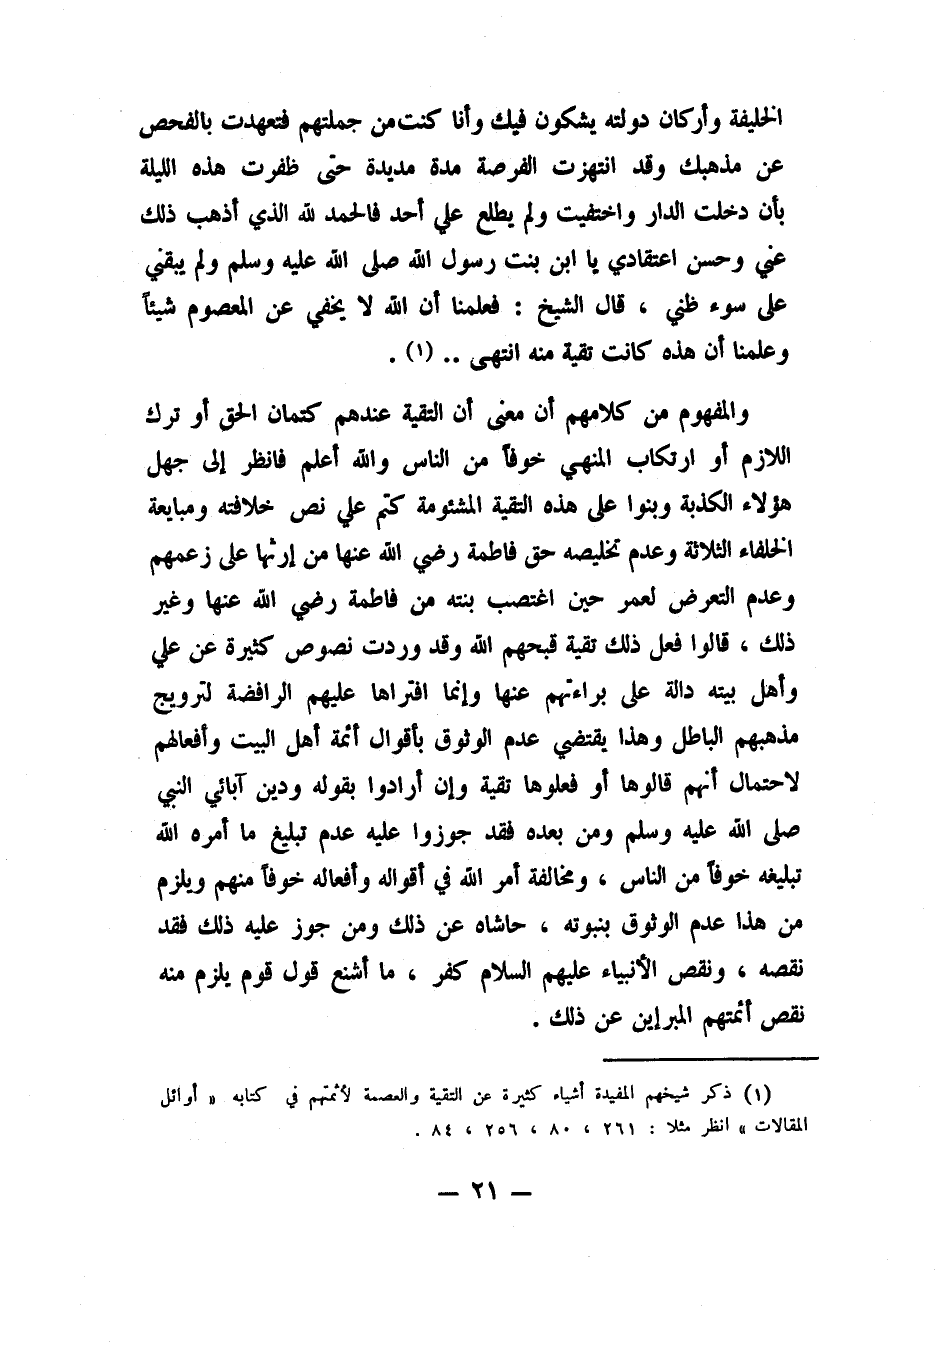 الخليفة وأركان دولته يشكون فيك وأنا كنت من جملتهم فتعهدت بالفحص
عن مذهبك وقد انتهزت الفرصة مدة مديدة حتى ظفرت هذه الليلة
بأن دخلت الدار واختفيت ولم يطلع علي أحد فالحمد لله الذي أذهب ذلك
عني وحسن اعتقادي يا ابن بنت رسول الله صلى الله عليه وسلم ولم يبقني
على سوء ظني ، قال الشيخ : فعلمنا أن الله لا يخفي عن المعصوم شيئاً
وعلمنا أن هذه كانت تقية منه انتهى .. (١) .
والمفهوم من كلامهم أن معنى أن التقية عندهم كتمان الحق أو ترك
اللازم أو ارتكاب المنهي خوفاً من الناس والله أعلم فانظر إلى جهل
هؤلاء الكذبة وبنوا على هذه التقية المشئومة كتم علي نص خلافته ومبايعة
الخلفاء الثلاثة وعدم تخليصه حق فاطمة رضي الله عنها من إرثها على زعمهم
وعدم التعرض لعمر حين اغتصب بنته من فاطمة رضي الله عنها وغير
ذلك ، قالوا فعل ذلك تقية قبحهم الله وقد وردت نصوص كثيرة عن علي
وأهل بيته دالة على براءتهم عنها وإنما افتراها عليهم الرافضة لترويج
مذهبهم الباطل وهذا يقتضي عدم الوثوق بأقوال أئمة أهل البيت وأفعالهم
لاحتمال أنهم قالوها أو فعلوها تقية وإن أرادوا بقوله ودين آبائي النبي
صلى الله عليه وسلم ومن بعده فقد جوزوا عليه عدم تبليغ ما أمره الله
تبليغه خوفاً من الناس ، ومخالفة أمر الله في أقواله وأفعاله خوفاً منهم ويلزم
من هذا عدم الوثوق بنبوته ، حاشاه عن ذلك ومن جوز عليه ذلك فقد
نقصه ، ونقص الأنبياء عليهم السلام كفر ، ما أشنع قول قوم يلزم منه
نقص أئمتهم المبرإين عن ذلك .
(١) ذكر شيخهم المفيدة أشياء كثيرة عن التقية والعصمة لأئمتهم في كتابه « أوائل
المقالات » انظر مثلا : ٢٦١ ، ٨٠ ، ٢٥٦ ، ٨٤ .
— ٢١ —